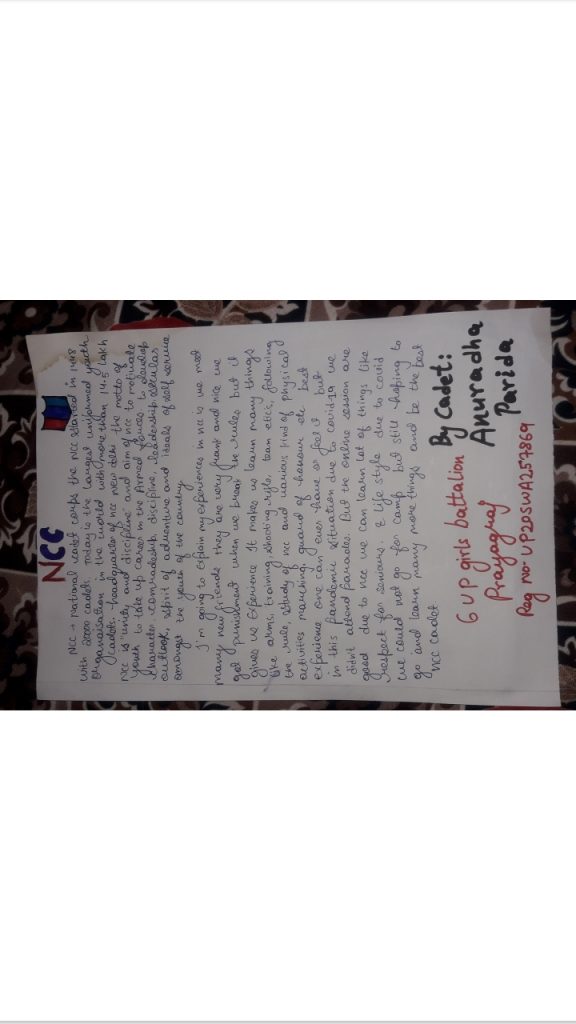 NCC
NCC → National cadet corps the NCC started in 1948
with 20000 cadets. Today is the largest uniformed youth
organisation in the world with more than 14.5 lakh
cadets. headquaters of ncc new delhi the motto of
NCC is "unity and discipline and aim of ncc to motivate
youth to take up career in the Armed forces, to develop
character comradeship, discipline, leadership, secular
outlook, spirit of adventure and ideals of self service
amongst the youth of the country.
I'm going to explain my experiences in ncc is we meet
many new friends they are very and nice we
got punishment when we break the rules but it
gives us experience It makes us learn many things
like arms, training, shooting, rifle, team etc, following
the rule, study of ncc and various kind of physical
activities marching, guard of honour etc best
experience one can ever have or feel it but
in this pandemic situation due to covid-19 we
didn't attend parades. But the online session are
good due to ncc we can learn lot of things like
respect for seniors. & life style due to covid
we could not go for camp but still hoping to
go and learn many more things and be the best
NCC cadet
By Cadet:
Anuradha
Parida
6 UP girls battalion
Prayagraj
Reg no- UP20SWA257869